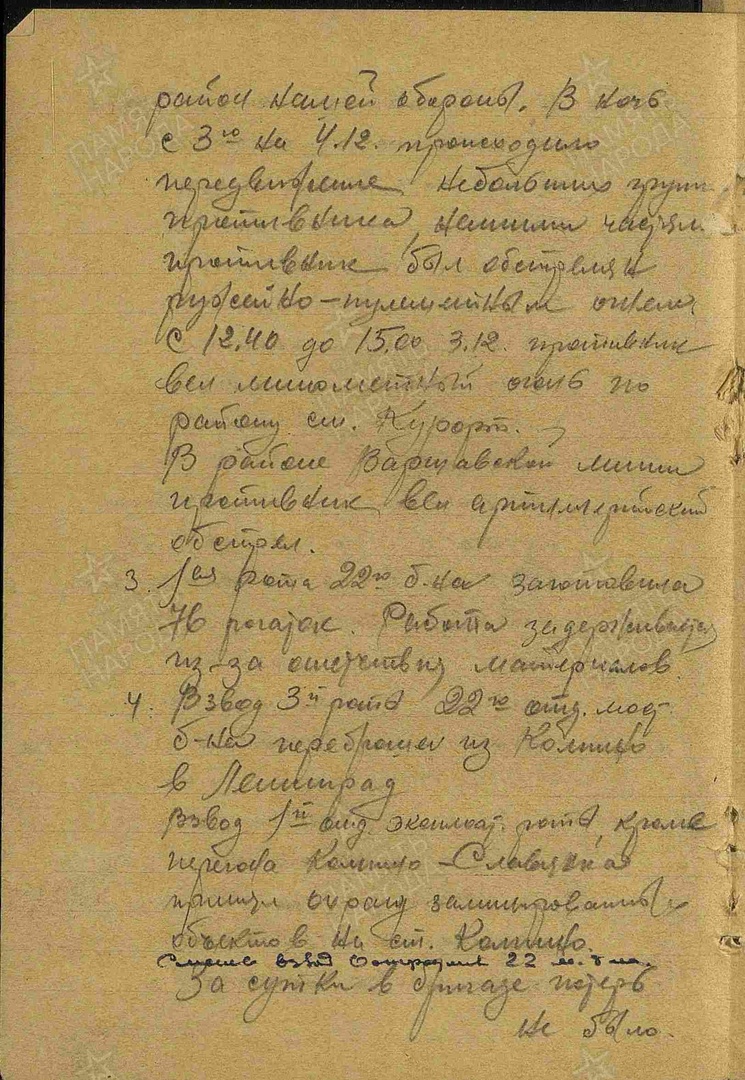 район нашей обороны. В ночь
с 3го на 4.12. происходило
передвижение небольших групп
противника, нашими частям
противник был обстрелян
ружейно-пулеметным огнем
С 12.40 до 15.00 3.12. противник
вел минометный огонь по
району ст. Курорт.
В районе Варшавской линии
противник вел артиллерийский
обстрел.
3. 1ая рота 22го б-на заготовила
76 рогаток. Работа задерживается
из-за отсутствия материалов
4. Взвод 3й роты 22го отд. мост.
б-на переброшен из Колпино
в Ленинград
Взвод 1й отд. эксплоат. роты, кроме
перегона Колпино-Славянка
принял охрану заминированных
объектов на ст. Колпино.
взвод 22 м. б-на.
За сутки в бригаде потерь
не было.
ПАМЯТЬ НАРОДА